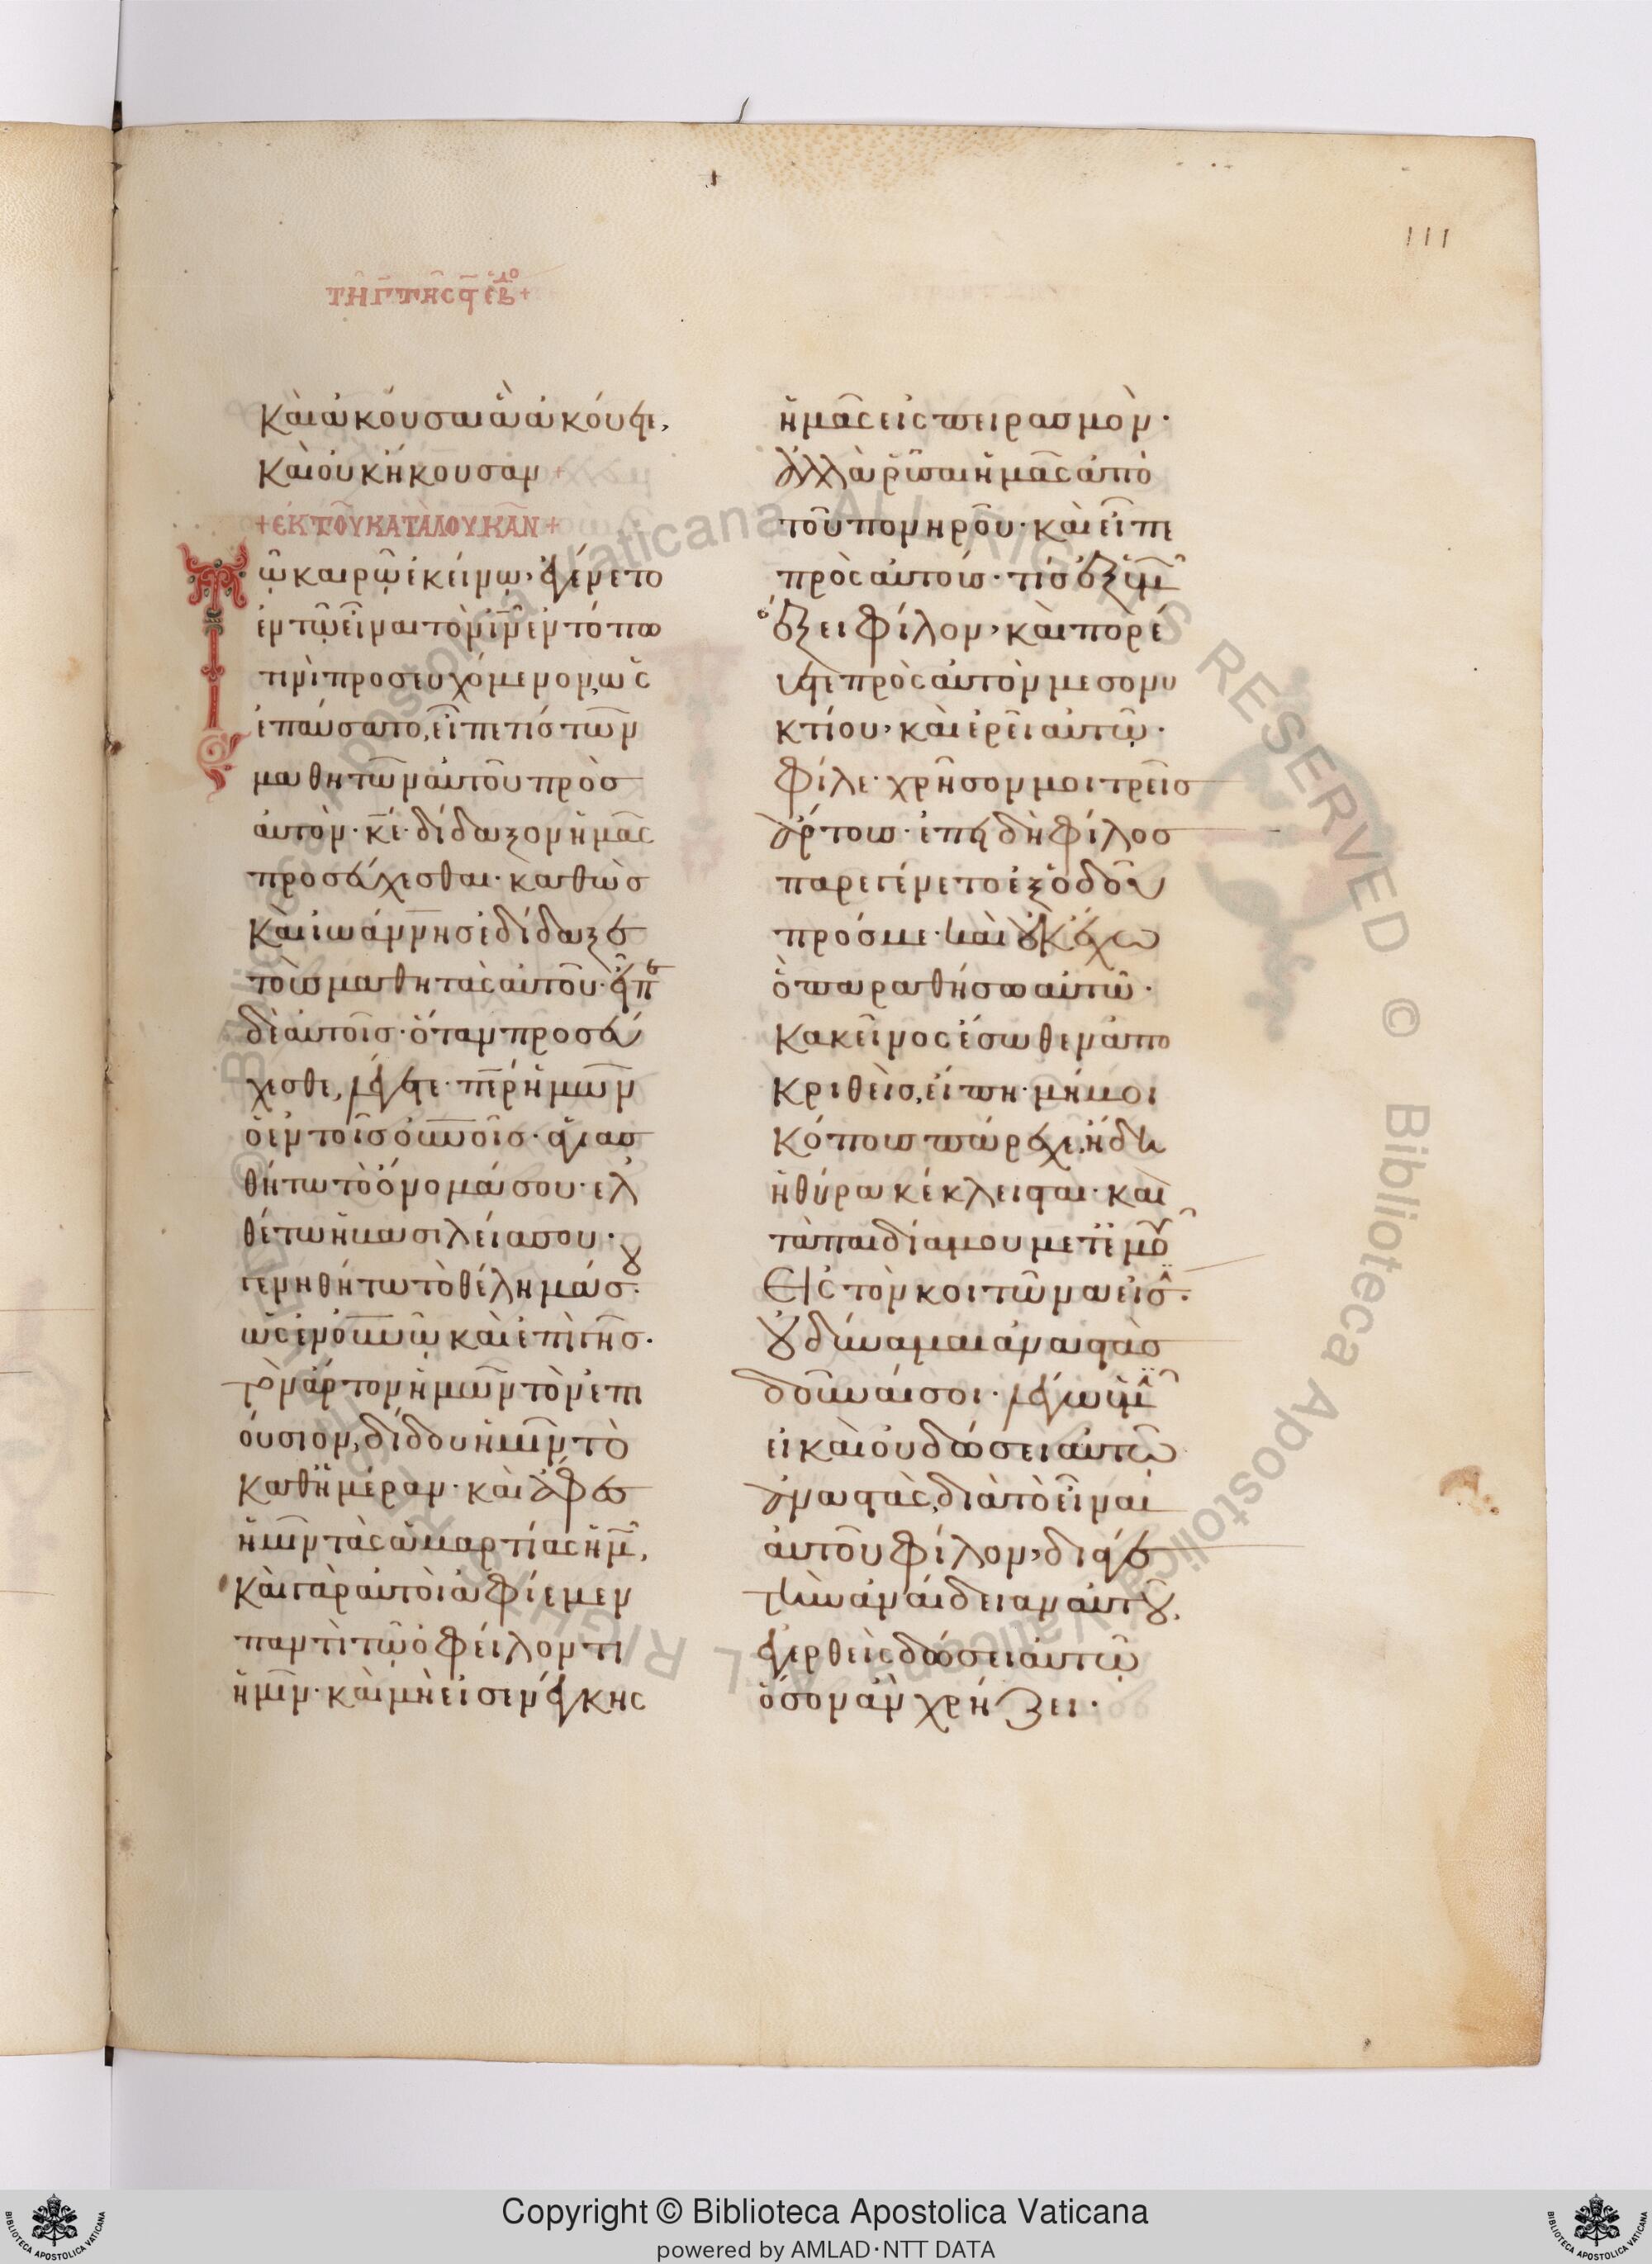 111
τῆ γ τῆς ϛ ἑβδο +
καὶ ἀκοῦσαι ἃ ἀκούετε,
καὶ οὐκ ἤκουσαν +
+ ἐκ τοῦ κατὰ λουκᾶν +
Τῶ καιρῶ ἐκείνω, ἐγένετο
ἐν τῶ εἶναι τὸν ιν ἐν τόπω
τινὶ προσευχόμενον, ὡς
ἐπαύσατο, εἶπε τίς τῶν
μαθητῶν αὐτοῦ πρὸς
αὐτόν· κε· δίδαξον ἡμᾶς
προσεύχεσθαι· καθὼς
καὶ ἰωάννης ἐδίδαξε
τοὺς μαθητὰς αὐτοῦ· εἶπε
δὲ αὐτοῖς· ὅταν προσεύ
χεσθε, λέγετε· περ ἡμῶν
ὁ ἐν τοῖς οὐνοῖς· ἁγιασ
θήτω τὸ ὄνομά σου· ἐλ
θέτω ἡ βασιλεία σου·
γενηθήτω τὸ θέλημά σου·
ὡς ἐν οὐνῶ καὶ ἐπὶ γῆς·
τὸν ἄρτον ἡμῶν τὸν ἐπι
ούσιον, δίδου ἡμῖν τὸ
καθ ἡμέραν· καὶ ἄφες
ἡμῖν τὰς ἁμαρτίας ἡμῶν,
καὶ γὰρ αὐτοὶ ἀφίεμεν
παντὶ τῶ ὀφείλοντι
ἡμῖν· καὶ μὴ εἰσενέγκης
ἡμᾶς εἰς πειρασμὸν·
ἀλλὰ ῥῦσαι ἡμᾶς ἀπὸ
τοῦ πονηροῦ· καὶ εἶπε
πρὸς αὐτούς· τίς ἐξ ὑμῶν
ἕξει φίλον, καὶ πορεύ
σεται πρὸς αὐτὸν μεσονυ
κτίου, καὶ ἐρεῖ αὐτῶ·
φίλε· χρῆσον μοι τρεῖς
ἄρτους· ἐπειδὴ φίλος
παρεγένετο ἐξ ὁδοῦ
πρός με· καὶ οὐκ ἔχω
ὃ παραθήσω αὐτῶ·
κακεῖνος ἔσωθεν ἀπο
κριθεὶς, εἴπη· μή μοι
κόπους πάρεχε, ἤδη
ἡ θύρα κέκλεισται· καὶ
τὰ παιδία μου μετ ἐμοῦ
εἰς τὸν κοιτῶνα εἰσὶν·
οὐ δύναμαι ἀναστὰς
δοῦναί σοι· λέγω ὑμῖν
εἰ καὶ οὐ δώσει αὐτῶ
ἀναστὰς, διὰ τὸ εἶναι
αὐτοῦ φίλον, διά γε
τὴν ἀναίδειαν αὐτοῦ,
ἐγερθεὶς δώσει αὐτῶ
ὅσον ἂν χρήζει·
© Biblioteca Apostolica Vaticana ALL RIGHTS RESERVED © Biblioteca Apostolica Vaticana ALL RIGHTS R
Copyright © Biblioteca Apostolica Vaticana
powered by AMLAD·NTT DATA
BIBLIOTECA APOSTOLICA VATICANA
BIBLIOTECA APOSTOLICA VATICANA